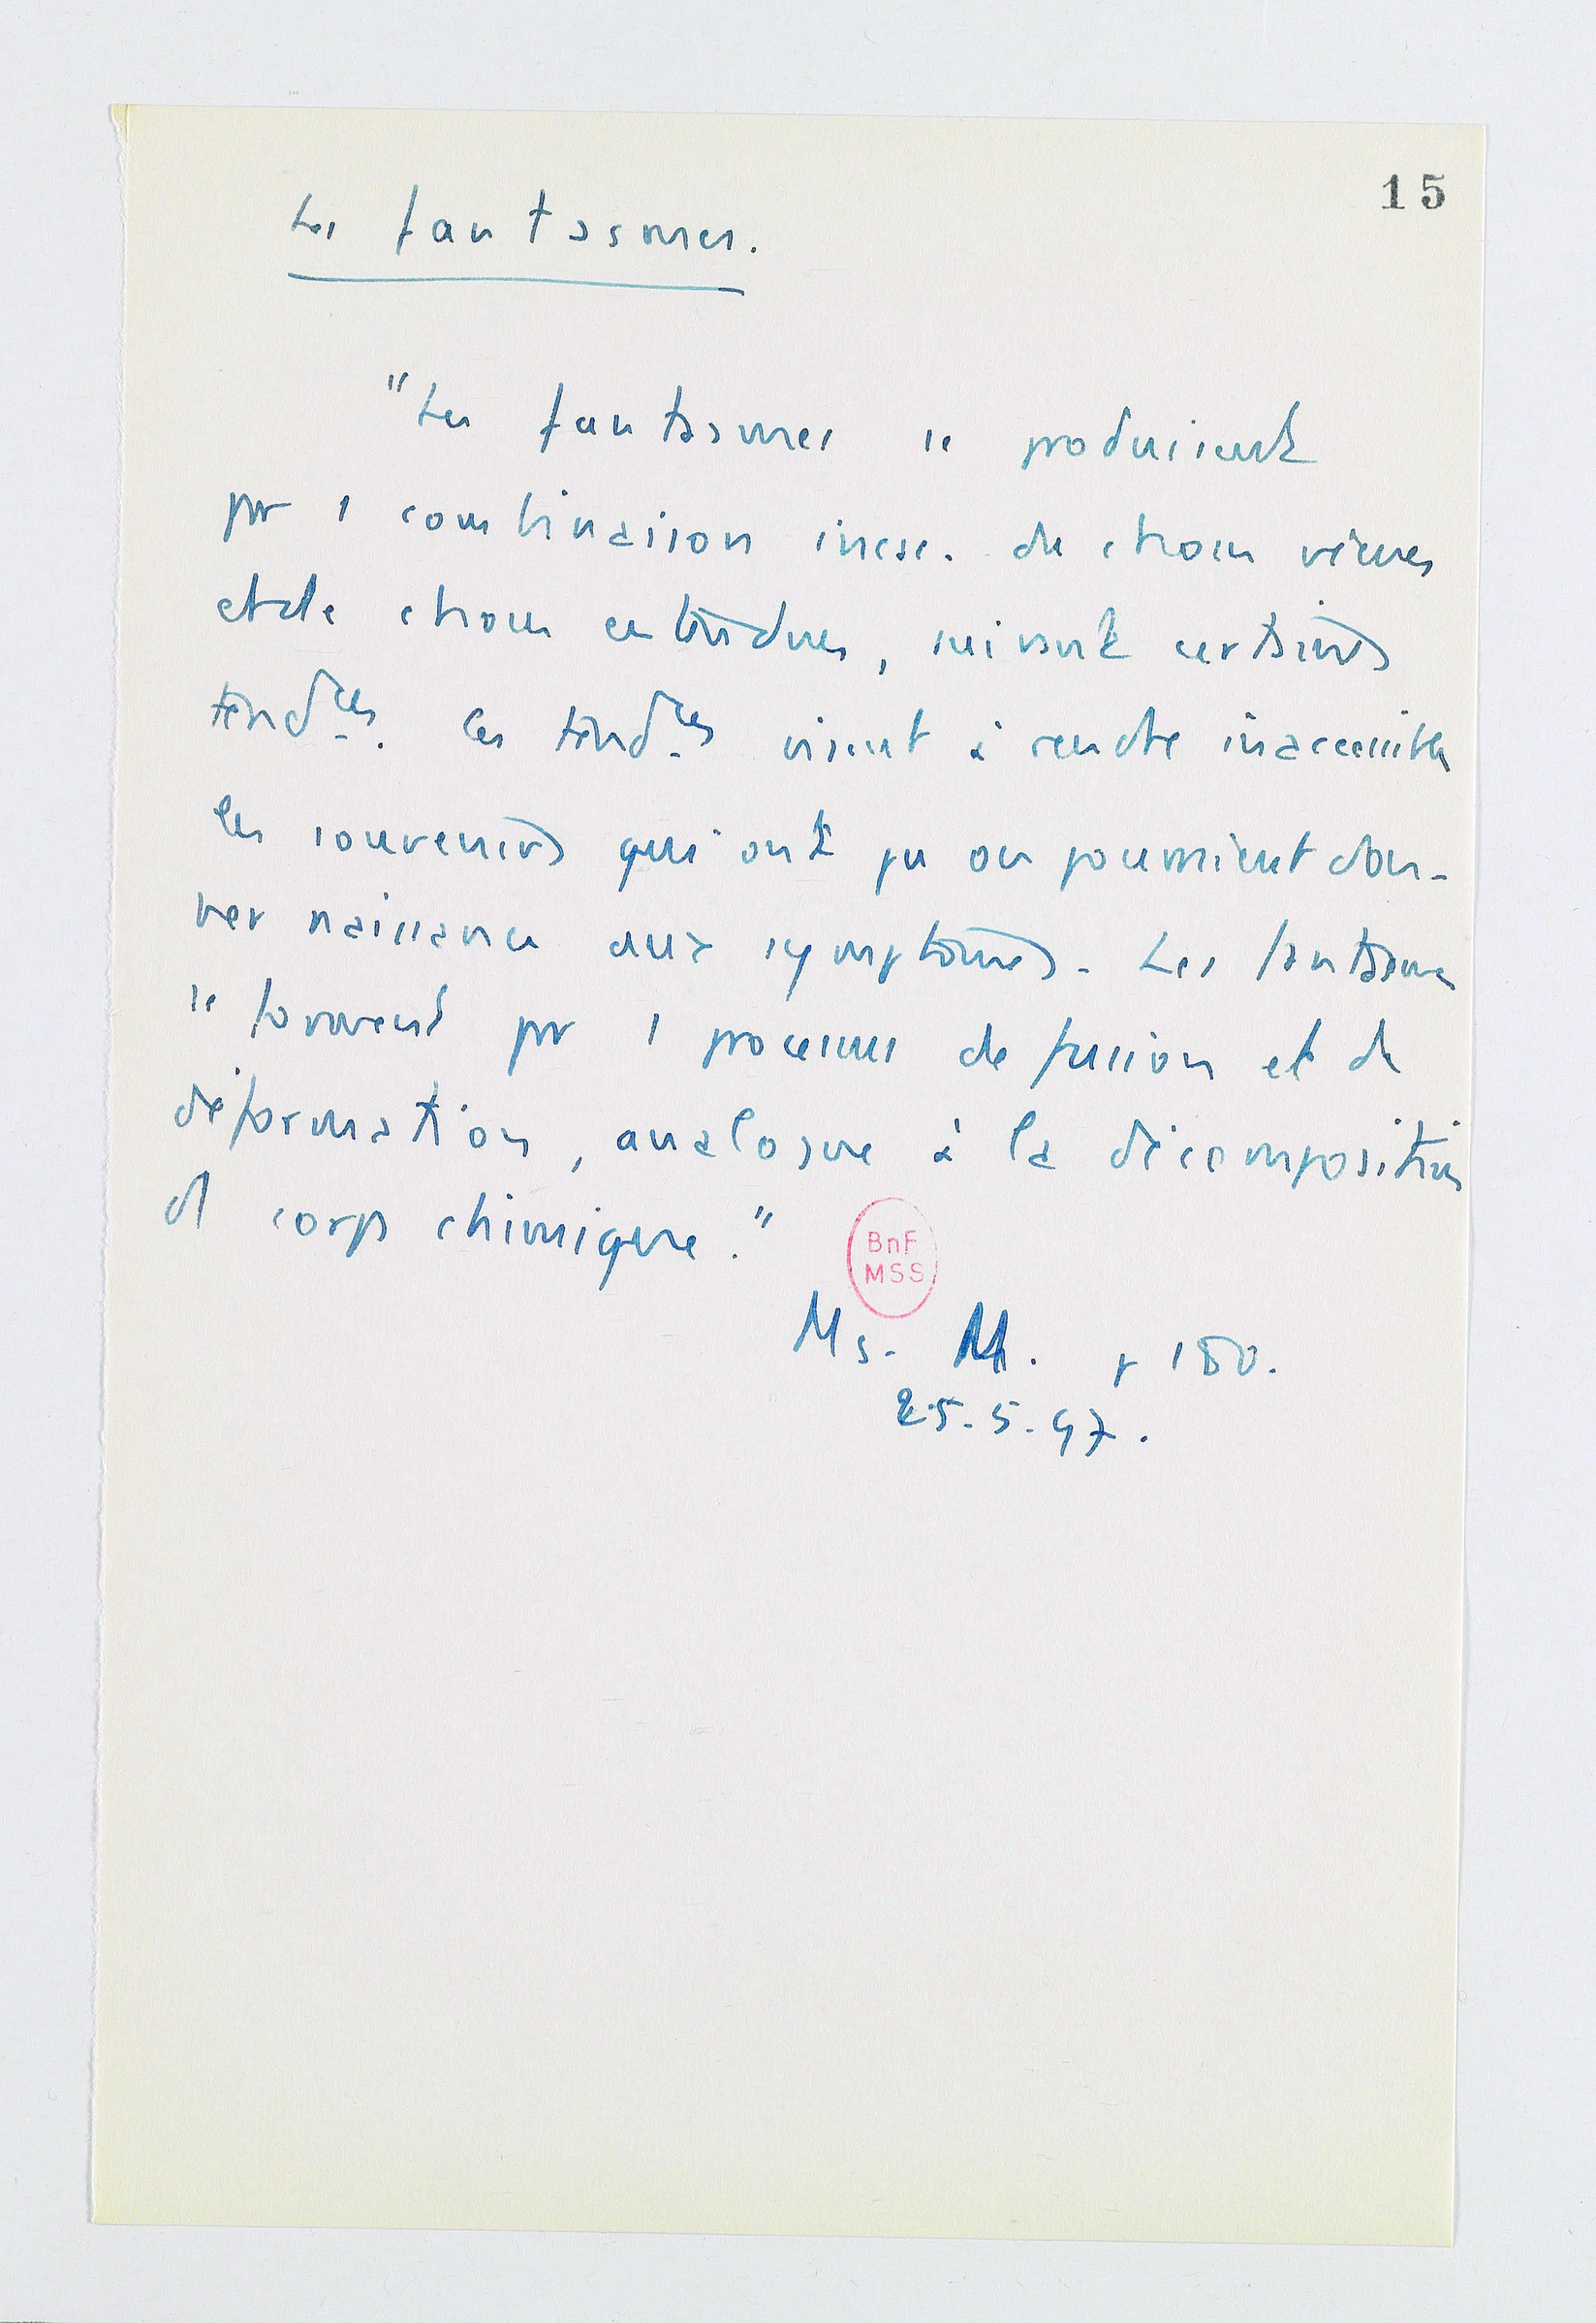 15
Les fantasmes.
"Les fantasmes se produisent
par 1 combinaison incsc. de choses vécues
et de choses entendues, suivant certaines
tendces. Ces tendces visent à rendre inaccessibles
les souvenirs qui ont pu ou pourraient don-
ner naissance aux symptômes. Les fantasmes
se forment par 1 processus de fusion et de
déformation, analogue à la décomposition
d'1 corps chimique."
BnF
MSS
Ms. M. p 180.
25.5.97.